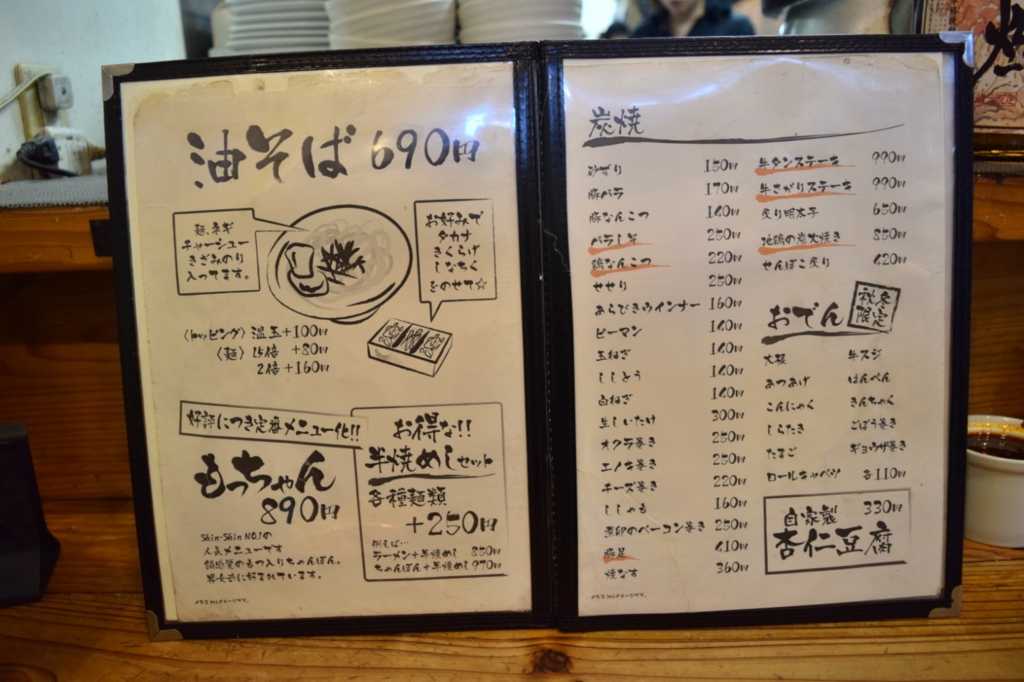 油そば 690円
麺、ネギ
チャーシュー
きざみのり
入ってます。
お好みで
タカナ
きくらげ
しなちく
をのせて☆
〈トッピング〉温玉+100円
〈麺〉1.5倍 +80円
2倍 +160円
好評につき定番メニュー化!!
もつちゃん
890円
Shin-Shin NO.1の
人気メニューです
男女共に好まれています。
お得な!!
半焼めしセット
各種麺類
+250円
例えば…
ラーメン+半焼めし 850円
ちゃんぽん+半焼めし 970円
炭焼
砂ずり 150円
豚バラ 170円
豚なんこつ 140円
バラし芽 250円
鶏なんこつ 220円
せせり 250円
あらびきウインナー 160円
ピーマン 140円
玉ねぎ 140円
ししとう 140円
白ねぎ 140円
生しいたけ 300円
オクラ巻き 250円
エノキ巻き 250円
チーズ巻き 220円
ししゃも 160円
煮卵のベーコン巻き 250円
豚足 410円
焼なす 360円
牛タンステーキ 990円
牛さがりステーキ 990円
炙り明太子 650円
地鶏の炭火焼き 850円
せんぽこ炙り 420円
おでん
秋冬限定
大根 牛スジ
あつあげ はんぺん
こんにゃく きんちゃく
しらたき ごぼう巻き
たまご ギョウザ巻き
ロールキャベツ 各110円
自家製 330円
杏仁豆腐